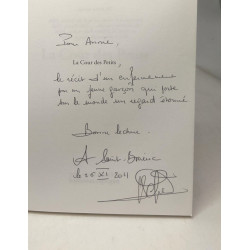 Pour Annie,
La Cour des Petits
le récit d'un enfermement
par un jeune garçon qui porte
sur le monde un regard étonné
Bonne lecture
A Saint-Brieuc
le 26 XI 2011